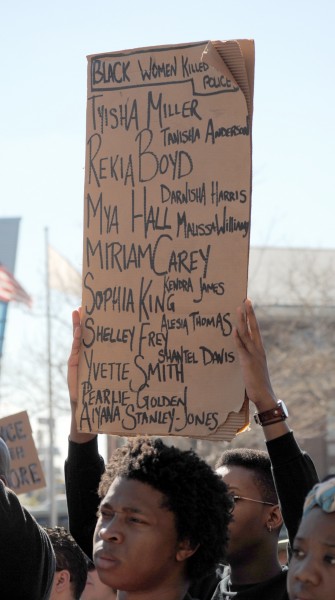 BLACK WOMEN KILLED
POLICE
TYISHA MILLER
TANISHA ANDERSON
REKIA BOYD
DARNISHA HARRIS
MYA HALL
MALISSA WILLIAMS
MIRIAM CAREY
KENDRA JAMES
SOPHIA KING
ALESIA THOMAS
SHELLEY FREY
SHANTEL DAVIS
YVETTE SMITH
PEARLIE GOLDEN
AIYANA STANLEY-JONES
ICE
OR
ORE